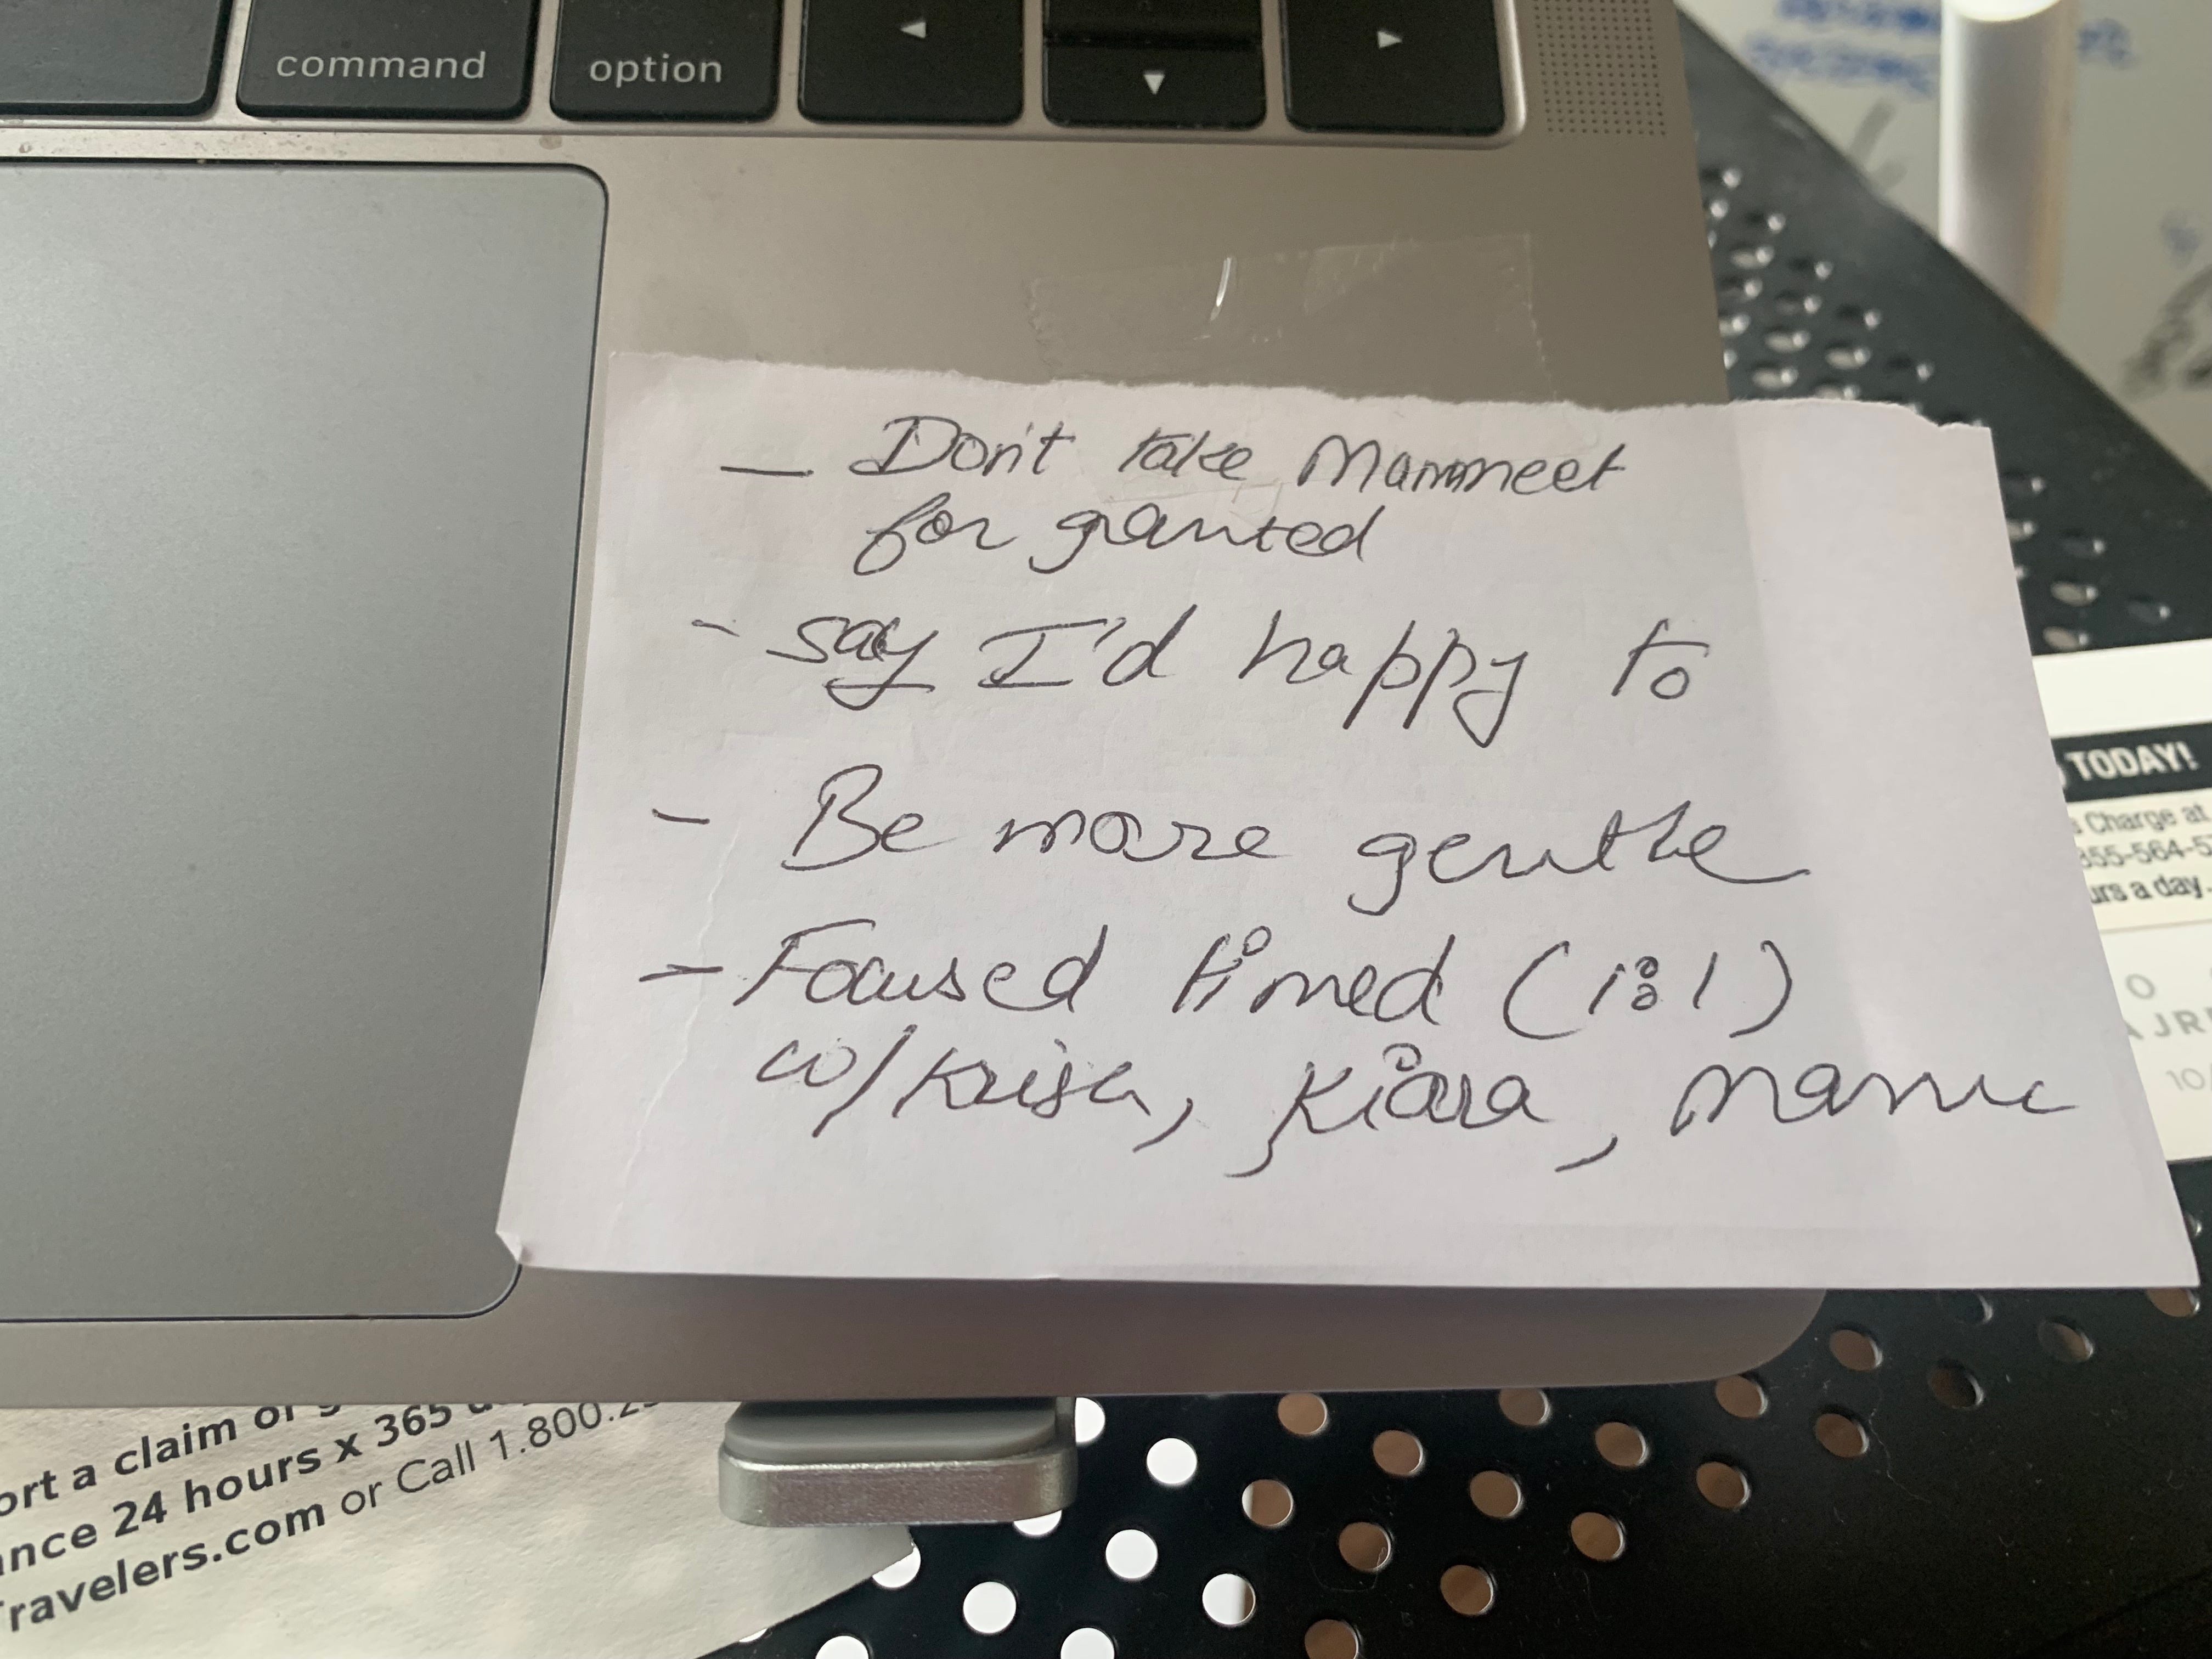 command
option
— Don't take Manmeet
for granted
- say I'd happy to
- Be more gentle
- Focused timed (1:1)
w/ Krish, Kiara,
TODAY!
Charge at
855-564-5
urs a day.
JR
10/
ort a claim or
nce 24 hours x 365
ravelers.com or Call 1.800.2